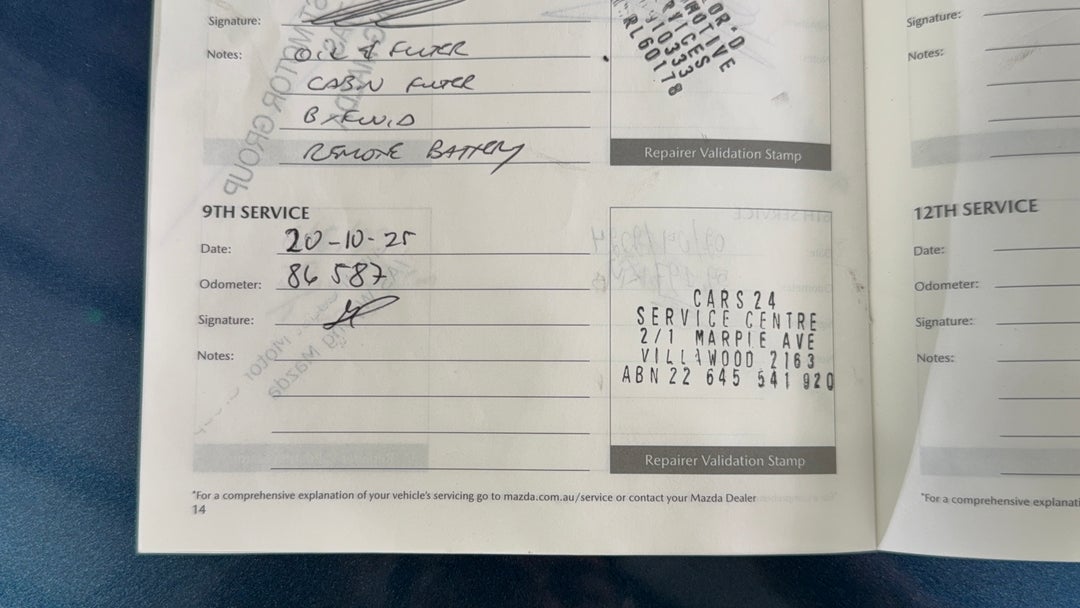 Signature:
Notes: OIL & FILTER
CABIN FILTER
B/FLUID
REMOTE BATTERY
RL60178
Repairer Validation Stamp
9TH SERVICE
Date: 20-10-25
Odometer: 86 587
Signature:
Notes:
CARS24
SERVICE CENTRE
2/1 MARPLE AVE
VILLAWOOD 2163
ABN 22 645 541 920
Repairer Validation Stamp
*For a comprehensive explanation of your vehicle's servicing go to mazda.com.au/service or contact your Mazda Dealer
14
Signature:
Notes:
12TH SERVICE
Date:
Odometer:
Signature:
Notes:
*For a comprehensive explanati